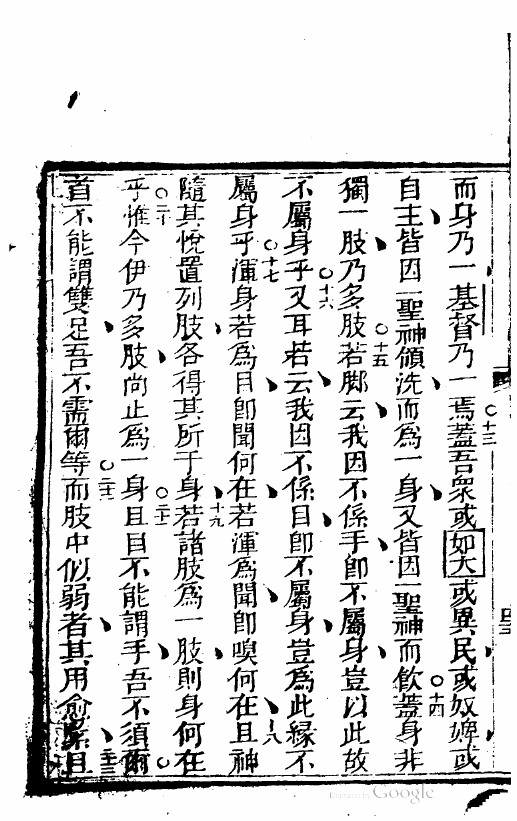 而身乃一基督乃一焉○十三蓋吾衆或如大或異民或奴婢或
自主皆因一聖神領洗而為一身又皆因一聖神而飲○十四蓋身非
獨一肢乃多肢○十五若脚云我因不係手即不屬身豈以此故
不屬身乎○十六又耳若云我因不係目即不屬身豈為此緣不
屬身乎○十七渾身若為目即聞何在若渾為聞即嗅何在○十八且神
隨其悅置列肢各得其所于身○十九若諸肢為一肢則身何在
乎○二十惟今伊乃多肢尚止為一身○二十一且目不能謂手吾不須爾
首不能謂雙足吾不需爾等○二十二而肢中似弱者其用愈緊二十三且
Google